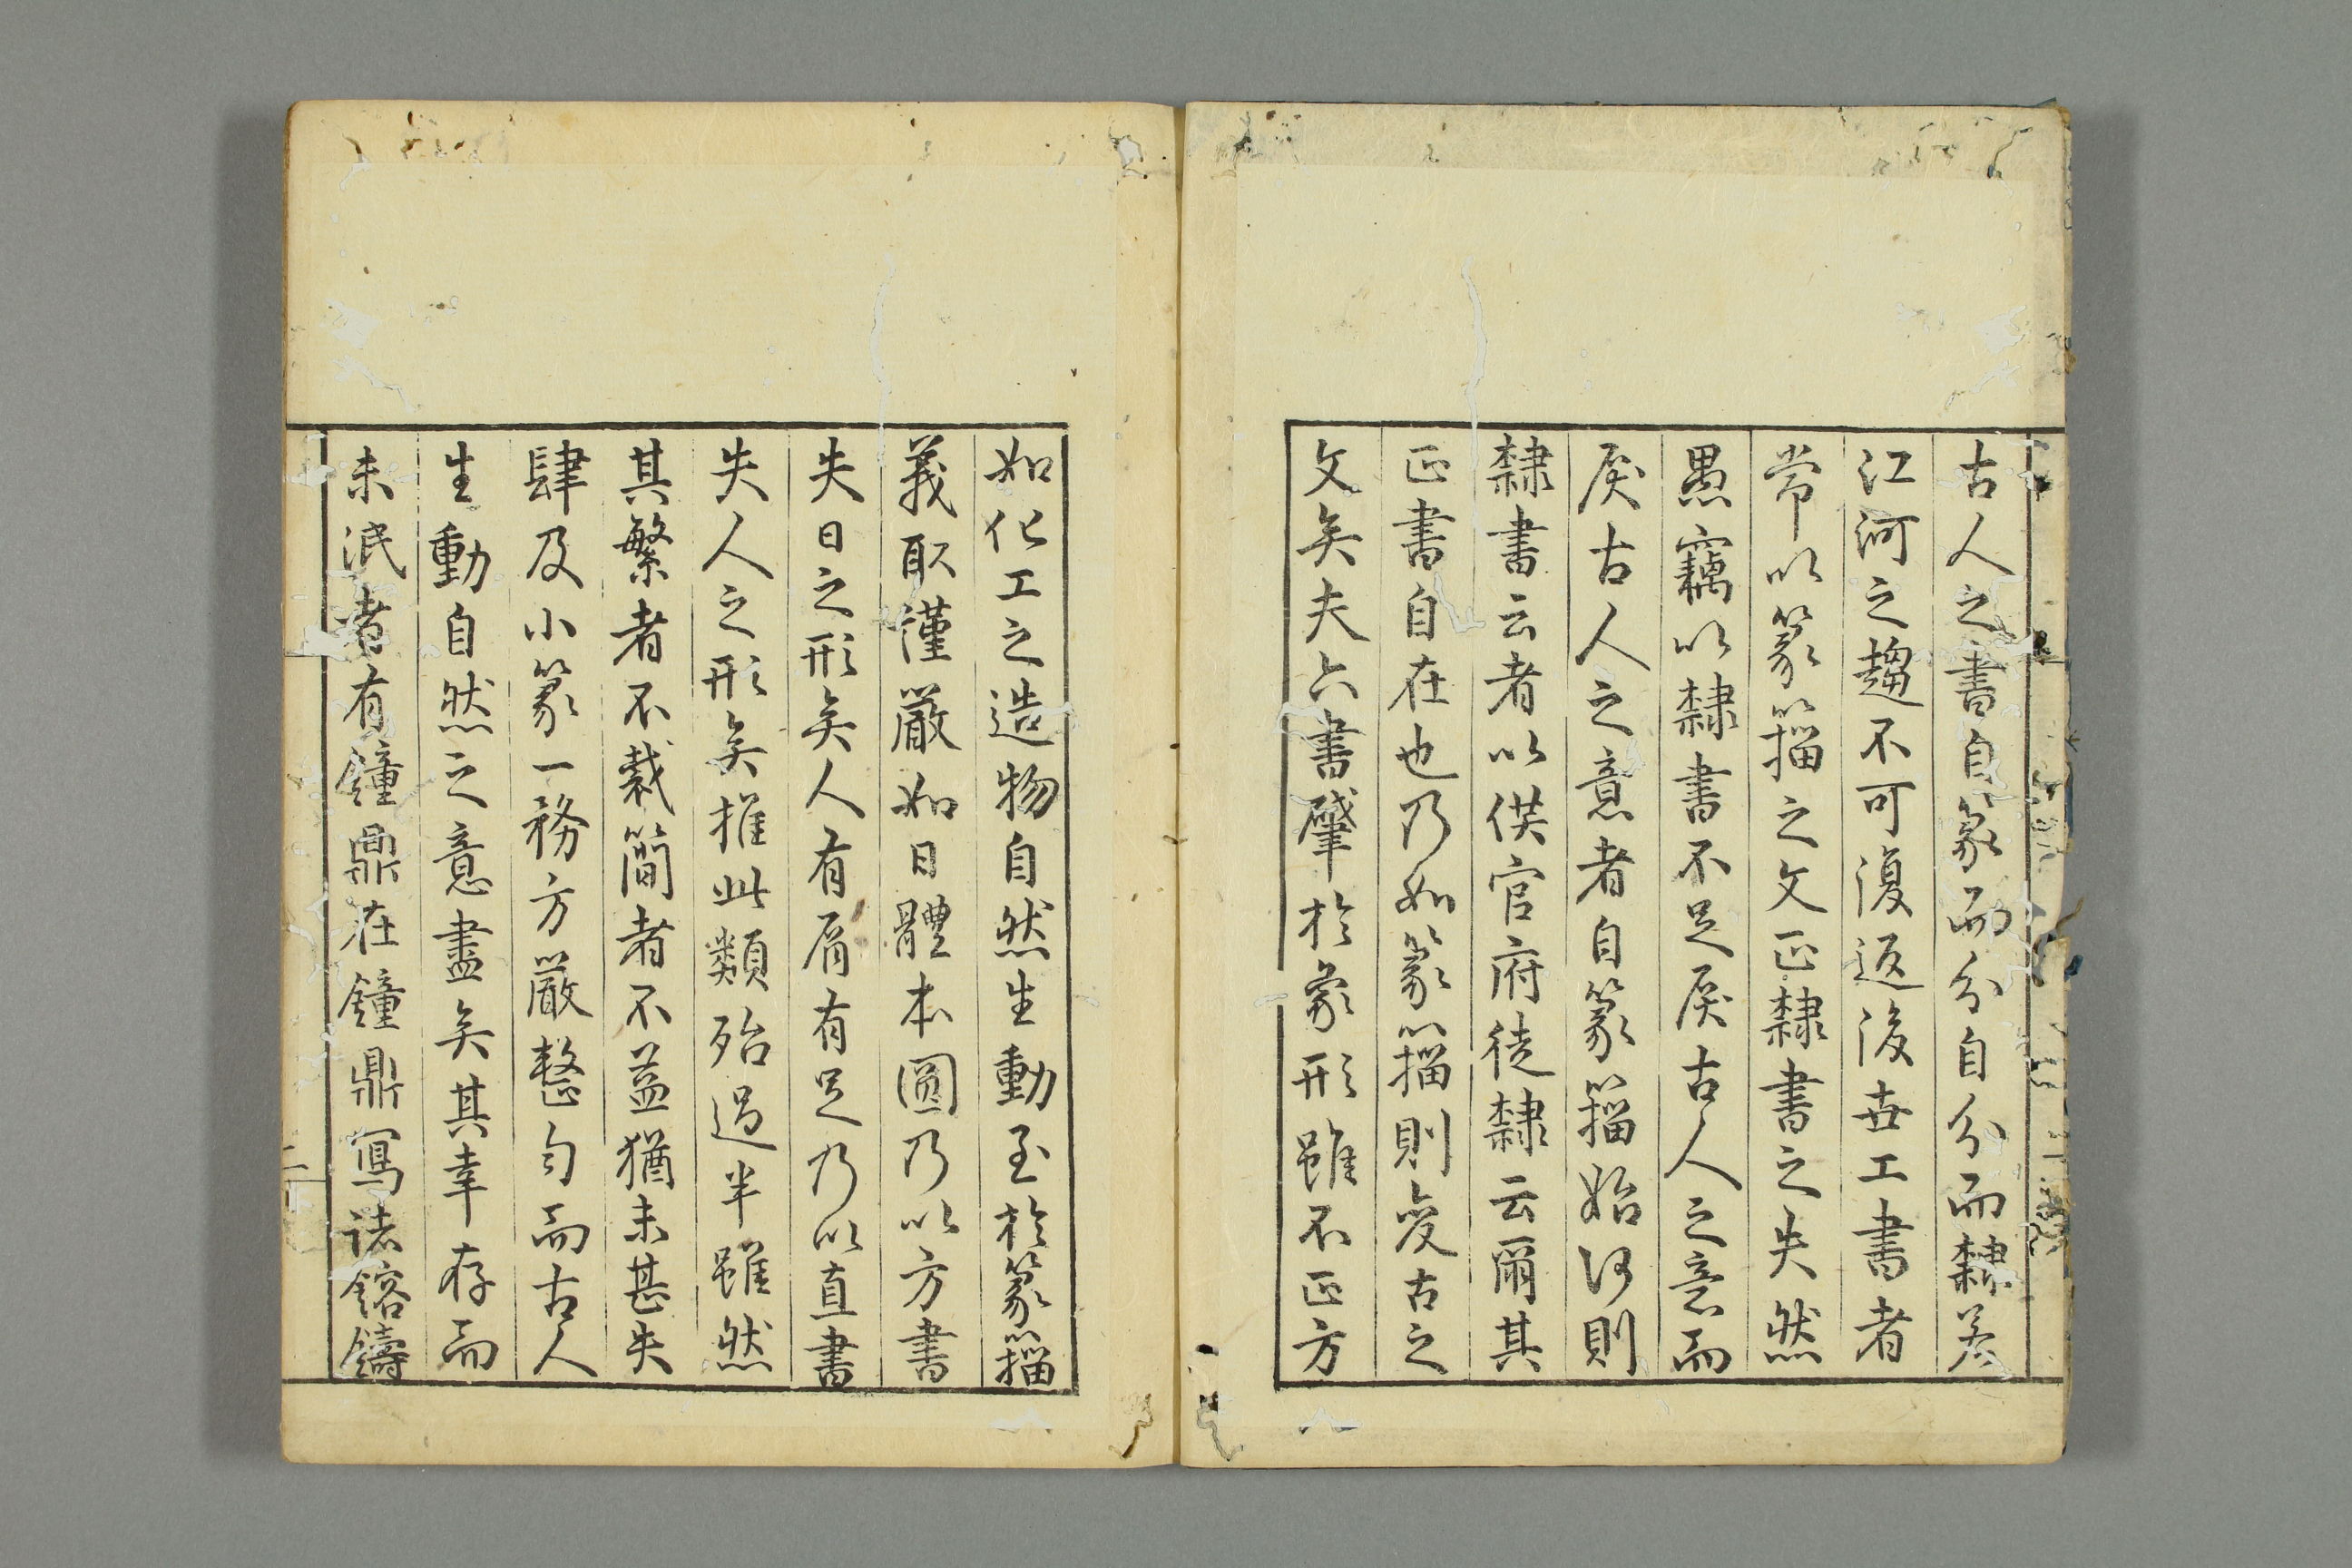 古人之書自篆而分自分而隸若
江河之趨不可復返後世工書者
常以篆籀之文正隸書之失然
愚竊以隸書不足戾古人之意而
戾古人之意者自篆籀始何則
隸書云者以供官府徒隸云爾其
正書自在也乃如篆籀則變古之
文矣夫六書肇於象形雖不正方
如化工之造物自然生動至於篆籀
義取謹嚴如日體本圓乃以方書
失日之形矣人有肩有足乃以直書
失人之形矣推此類殆過半雖然
其繁者不裁簡者不益猶未甚失
肆及小篆一務方嚴整勻而古人
生動自然之意盡矣其幸存而
未泯者有鐘鼎在鐘鼎寫諸鎔鑄